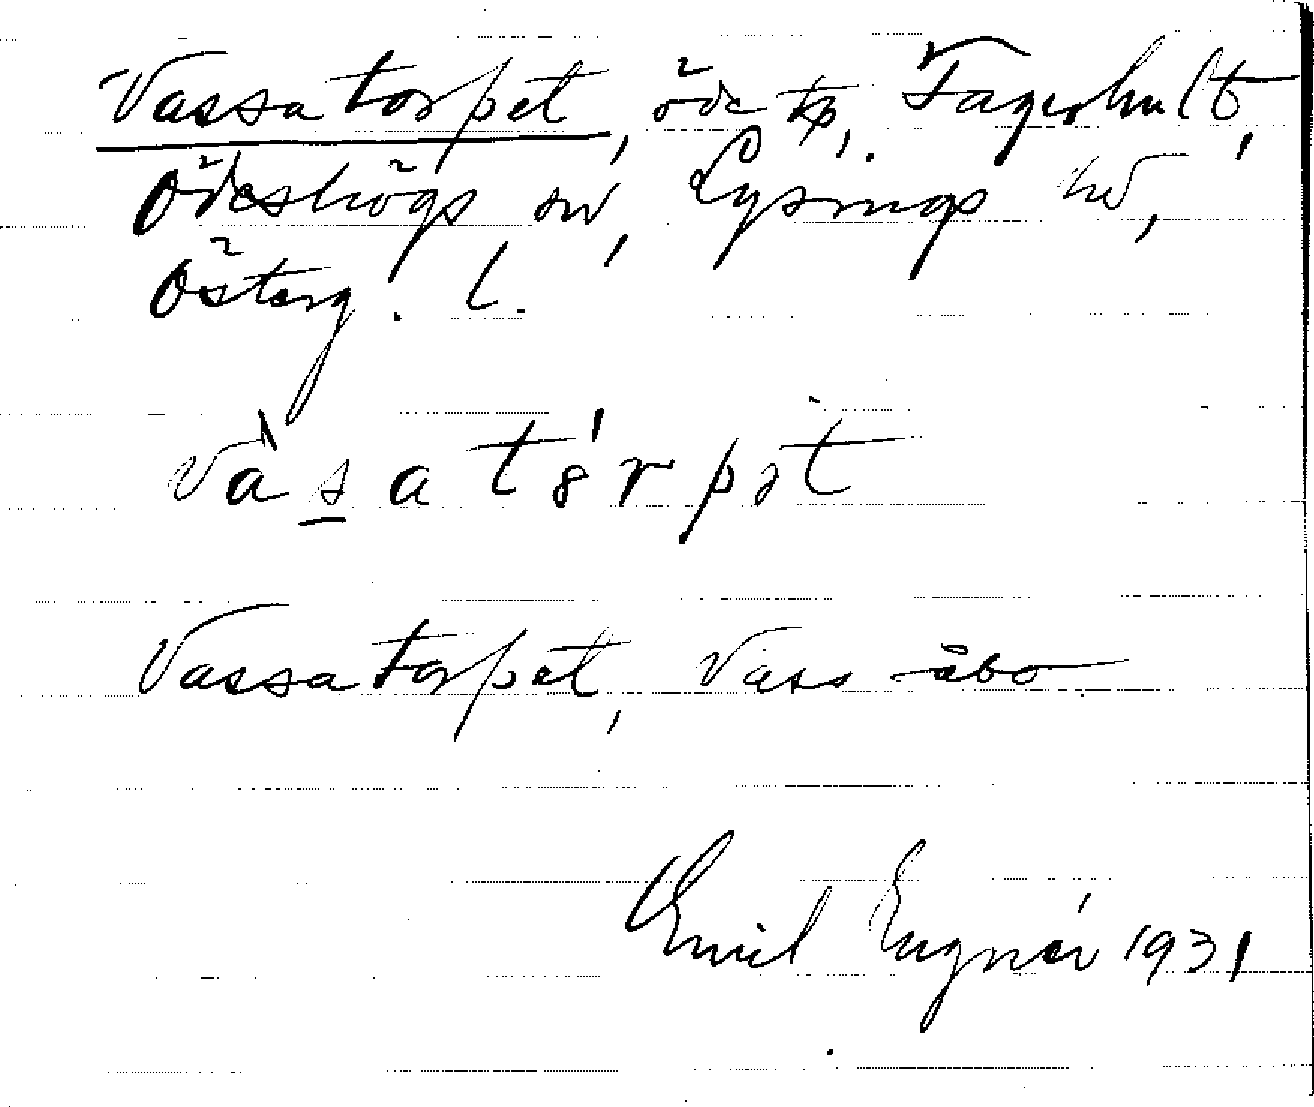 Vassatorpet, öde tp, Fagerhult,
Ödeshögs sn, Lysings hd,
Österg. l.
vàsatórpət
Vassatorpet, Vass-åbo
Emil Engnér 1931